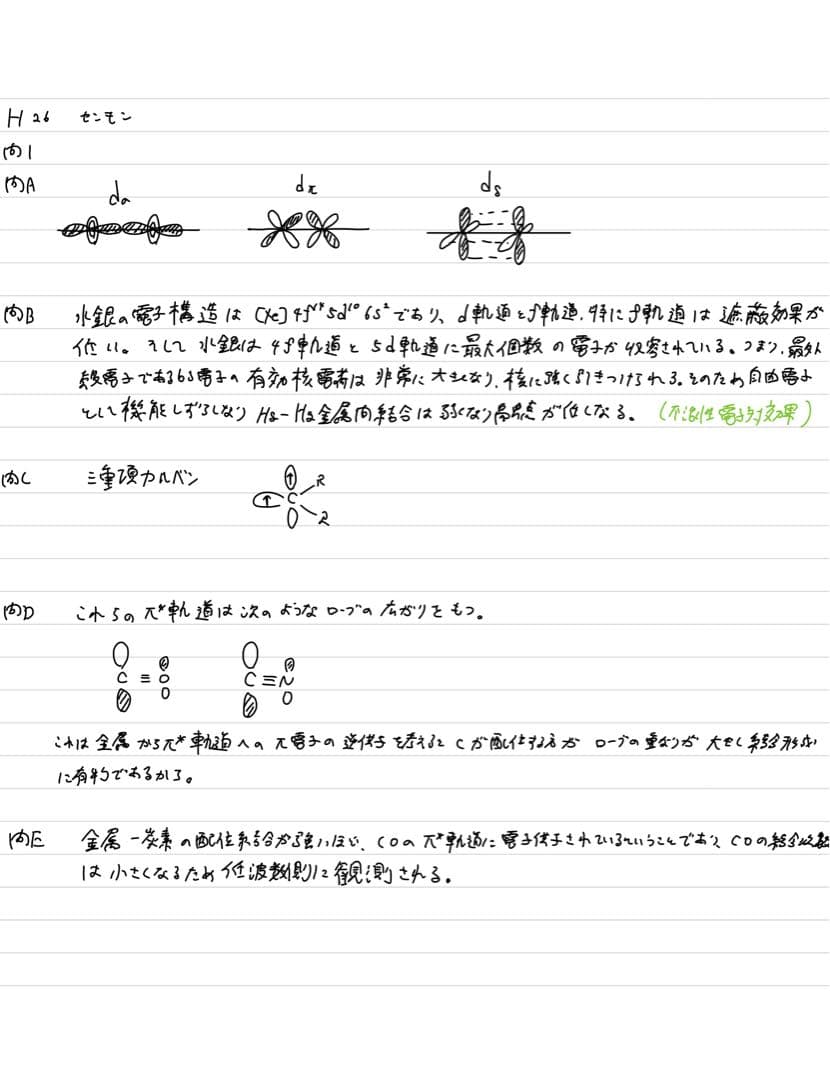 H26 センモン
問1
問A
dσ dπ dδ
問B 水銀の電子構造は [Xe]4f¹⁴5d¹⁰6s²であり、d軌道とf軌道、特にf軌道は遮蔽効果が
低い。そして水銀は4f軌道と5d軌道に最大個数の電子が収容されている。つまり、最外
殻電子である6s電子の有効核電荷は非常に大きくなり、核に強く引きつけられる。そのため自由電子
として機能しずらくなり Hg-Hg金属間結合は弱くなり融点が低くなる。(不活性電子対効果)
問C 三重項カルベン
↑ C R
↑ R
問D これらのπ*軌道は次のようなローブの広がりをもつ。
C≡O C≡N
これは金属からπ*軌道へのπ電子の逆供与を考えるとCが配位する方がローブの重なりが大きく結合形成
に有利であるから。
問E 金属-炭素の配位結合が強いほど、COのπ*軌道に電子供与されているということであり、COの結合次数
は小さくなるため低波数側に観測される。